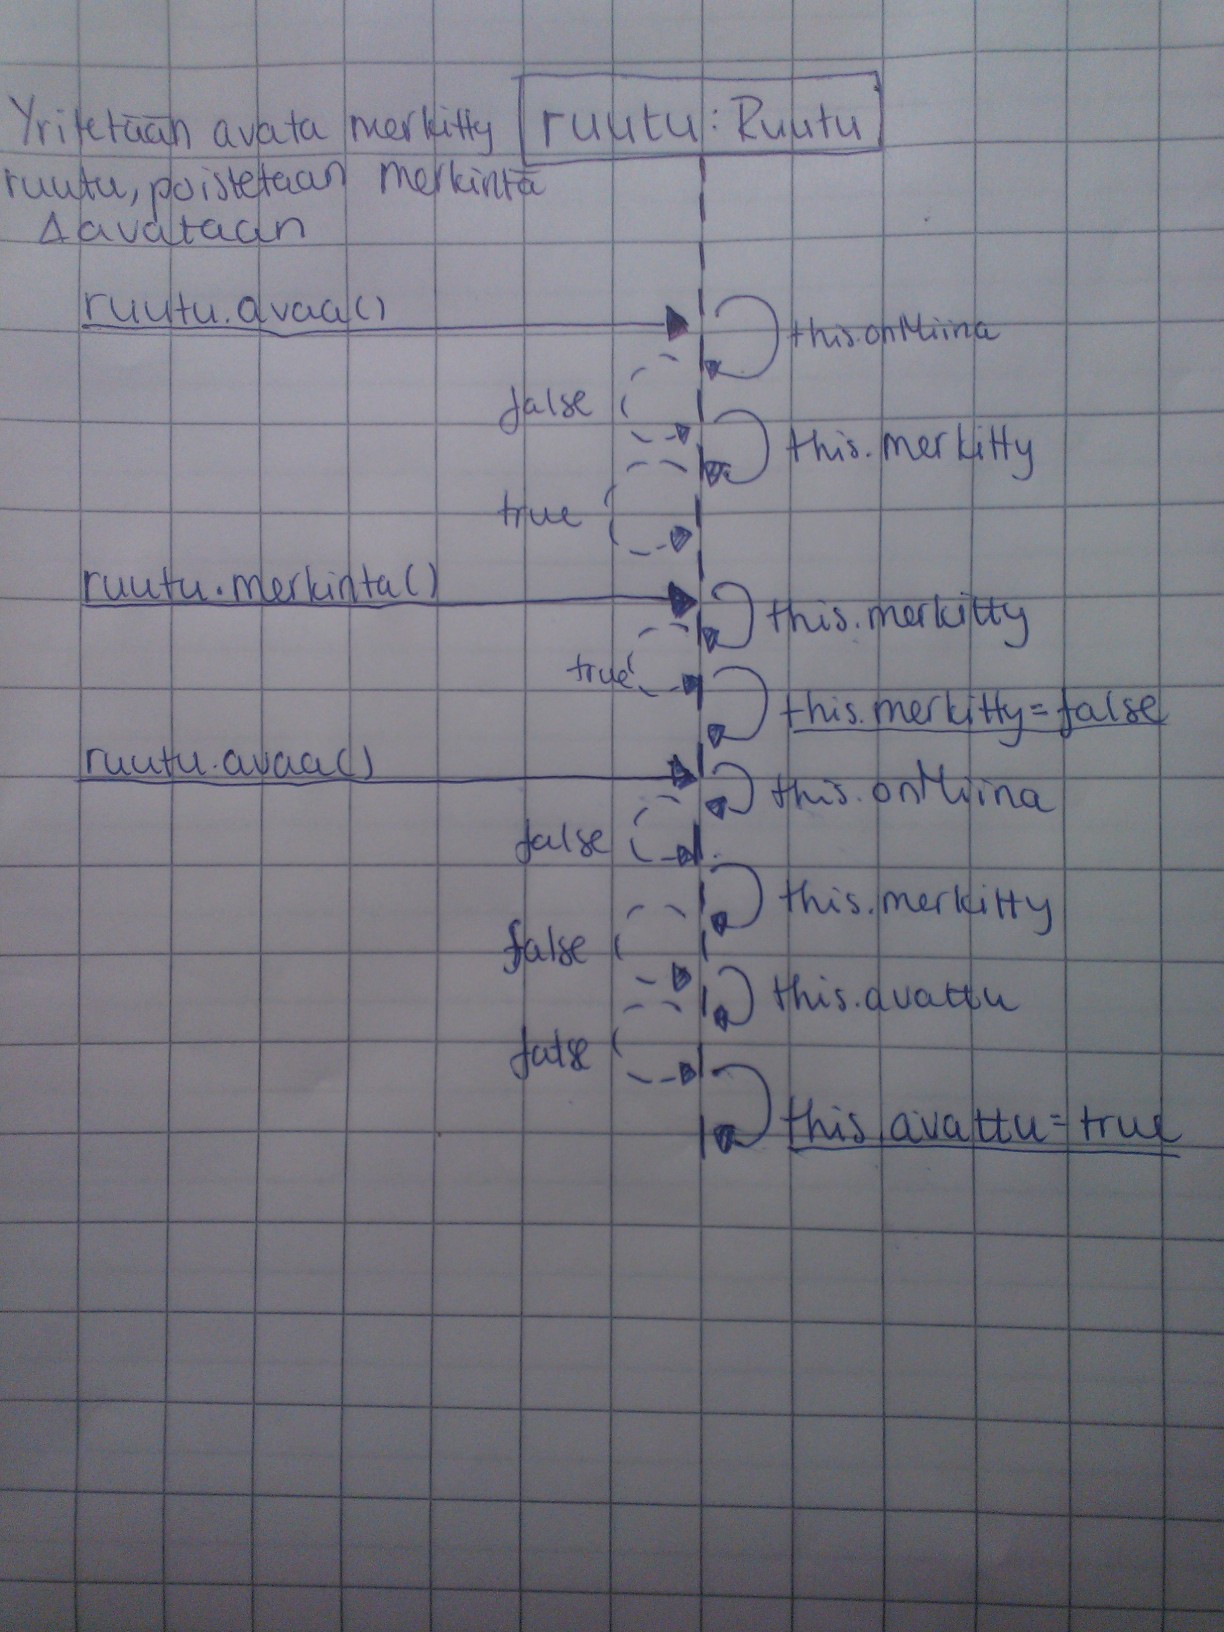 Yritetään avata merkitty
ruutu : Ruutu
ruutu, poistetaan merkintä
& avataan
ruutu.avaa()
this.onMiina
false
this.merkitty
true
ruutu.merkinta()
this.merkitty
true
this.merkitty = false
ruutu.avaa()
this.onMiina
false
this.merkitty
false
this.avattu
false
this.avattu = true